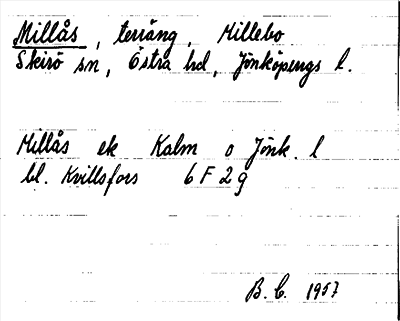 Millås, terräng, Hillebo
Skirö sn, Östra hd, Jönköpings l.
Millås ek Kalm o Jönk. l
bl. Kvillsfors 6 F 2 g
B. C. 1957